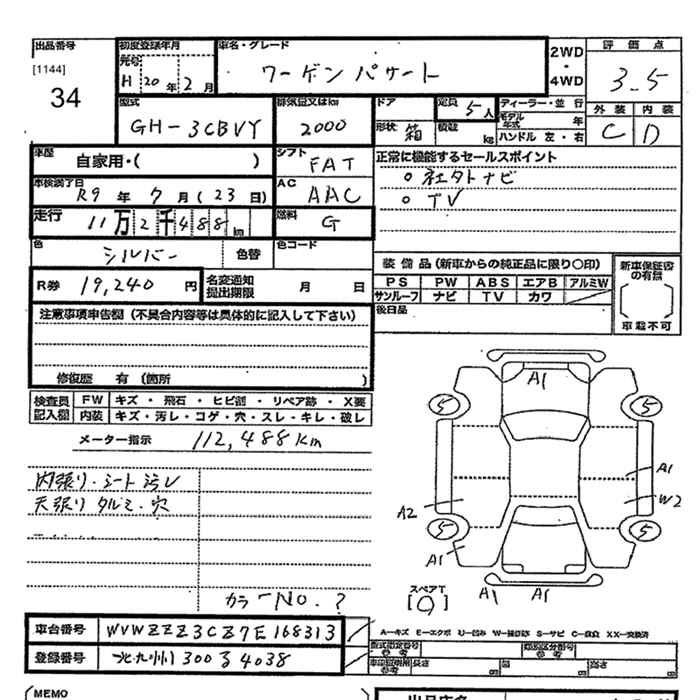 出品番号
[1144]
34
初度登録年月
元号
H 20 年 2 月
車名・グレード
ワーゲンパサート
2WD
・
4WD
評価点
3.5
外装 内装
C D
型式
GH-3CBVY
排気量又はkw
2000
ドア
形状 箱
定員 5人
積載 kg
ディーラー・並行
モデル年式 年
ハンドル 左・右
車歴
自家用・( )
シフト
FAT
正常に機能するセールスポイント
○ 社外ナビ
○ TV
車検満了日
R9 年 7 月 ( 23 日)
AC
AAC
走行
11 万 2 千 4 8 8 km
燃料
G
色
シルバー
色替
色コード
装備品(新車からの純正品に限り○印)
PS PW ABS エアB アルミW
サンルーフ ナビ TV カワ
後日品
新車保証書の有無
車載不可
R券 19,240 円
名変通知提出期限 月 日
注意事項申告欄(不具合内容等は具体的に記入して下さい)
修復歴 有(箇所 )
検査員記入欄
FW キズ・飛石・ヒビ割・リペア跡・X要
内装 キズ・汚レ・コゲ・穴・スレ・キレ・破レ
メーター指示 112,488Km
内張り・シート汚レ
天張り タルミ・穴
カラーNo.?
A1
5 5
A1
A2 W2
5 5
A1
A1 A1
スペアT
[○]
車台番号 WVWZZZ3CZ7E168313
登録番号 北九州300る4038
A-キズ E-エクボ U-凹み W-補修跡 S-サビ C-腐食 XX-交換済
型式指定番号
参考
類別区分番号
参考
車検証明用参考
長さ cm 幅 cm 高さ cm
MEMO
出品店名